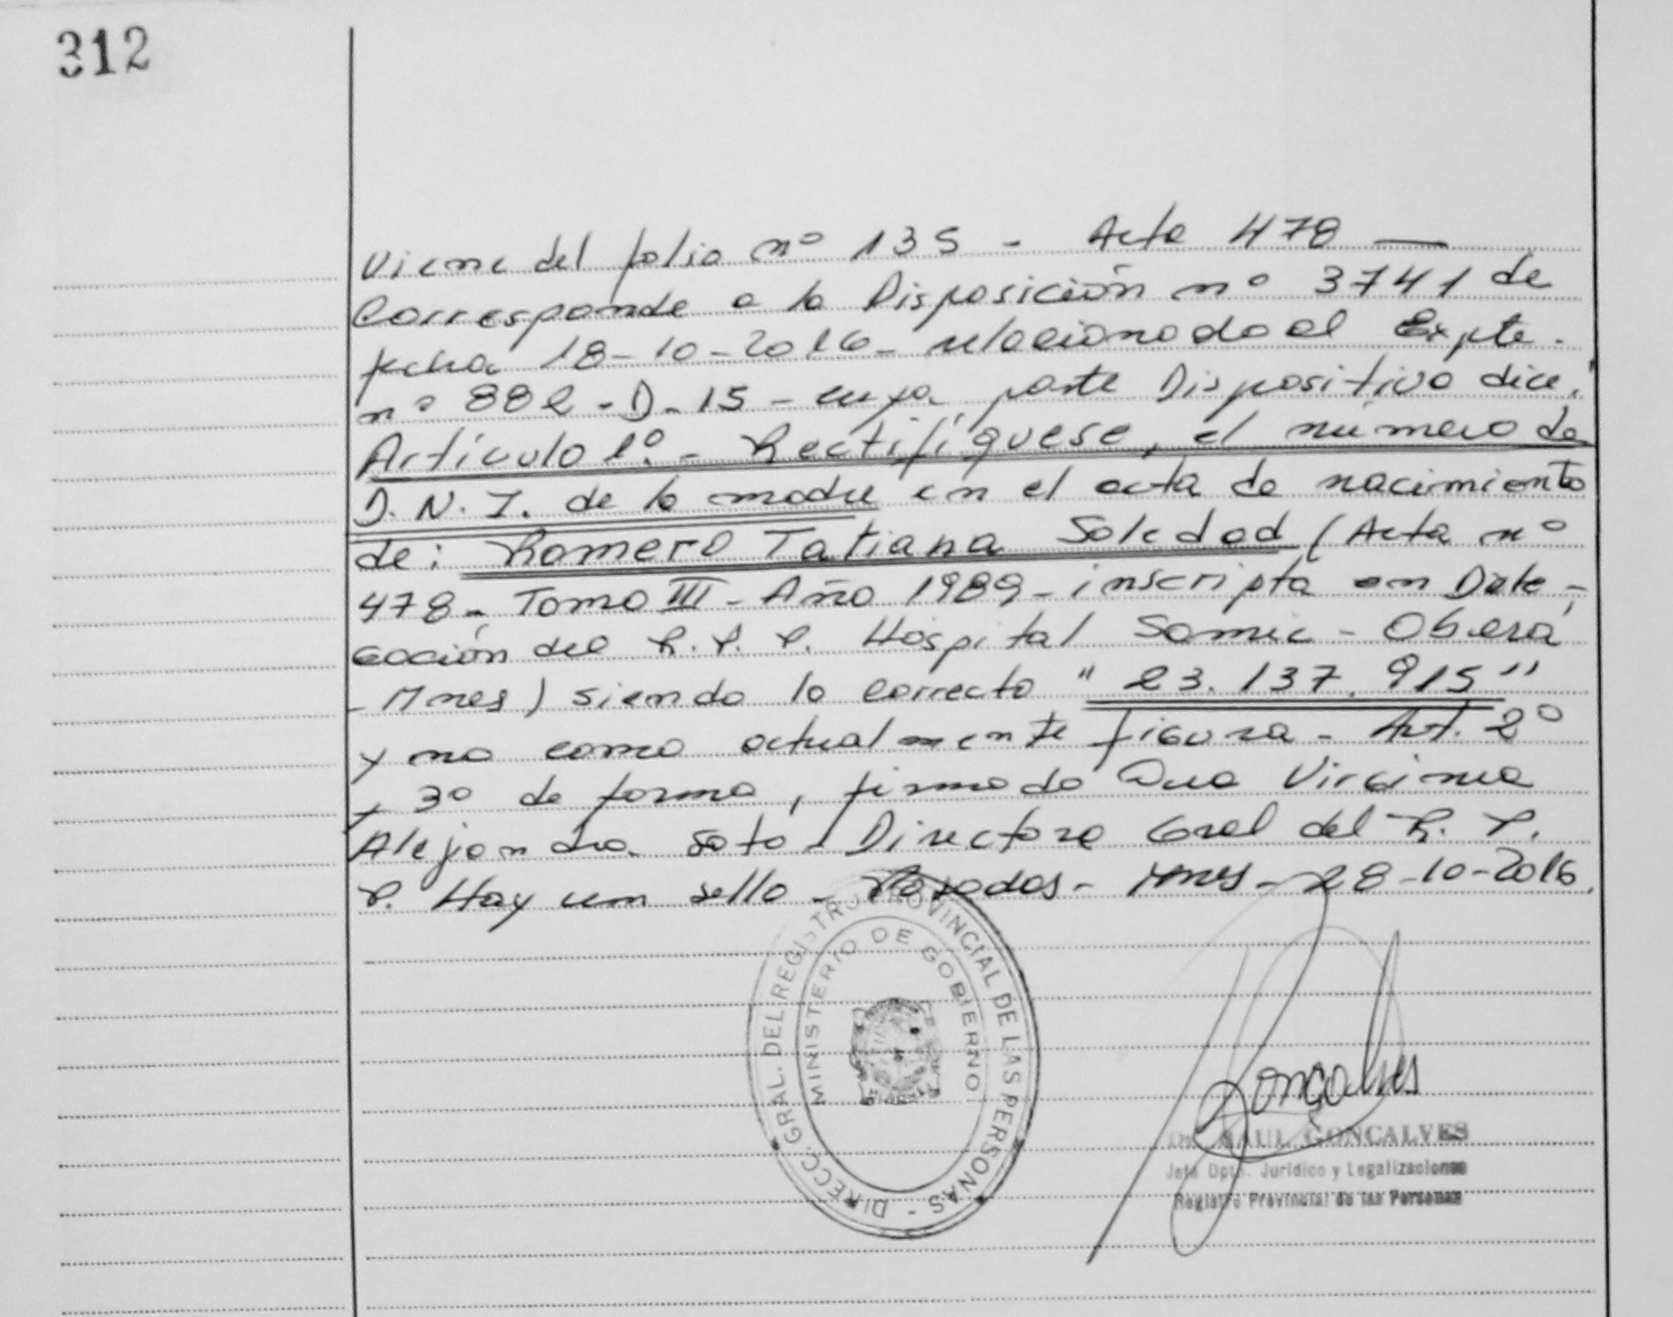 312
Viene del folio nº 135 - Acta 478 —
Corresponde a la Disposición nº 3741 de
fecha 18-10-2016- relacionado al Expte.
nº 882-D-15- cuya parte Dispositiva dice:
Artículo 1º.- Rectifíquese, el número de
D.N.I. de la madre en el acta de nacimiento
de: Romero Tatiana Soledad (Acta nº
478- Tomo III- Año 1989- inscripta en Dele-
gación del R.P.P. Hospital Samic - Oberá
- Mnes) siendo lo correcto "23.137.915"
y no como actualmente figura- Art. 2º
y 3º de forma, firmado Dra Virginia
Alejandra Soto, Directora Gral del R.P.
P. Hay un sello - Posadas- Mnes- 28-10-2016.
DIRECC. GRAL. DEL REGISTRO PROVINCIAL DE LAS PERSONAS -
MINISTERIO DE GOBIERNO
Gonçalves
RAUL GONCALVES
Jefe Dpto. Jurídico y Legalizaciones
Registro Provincial de las Personas